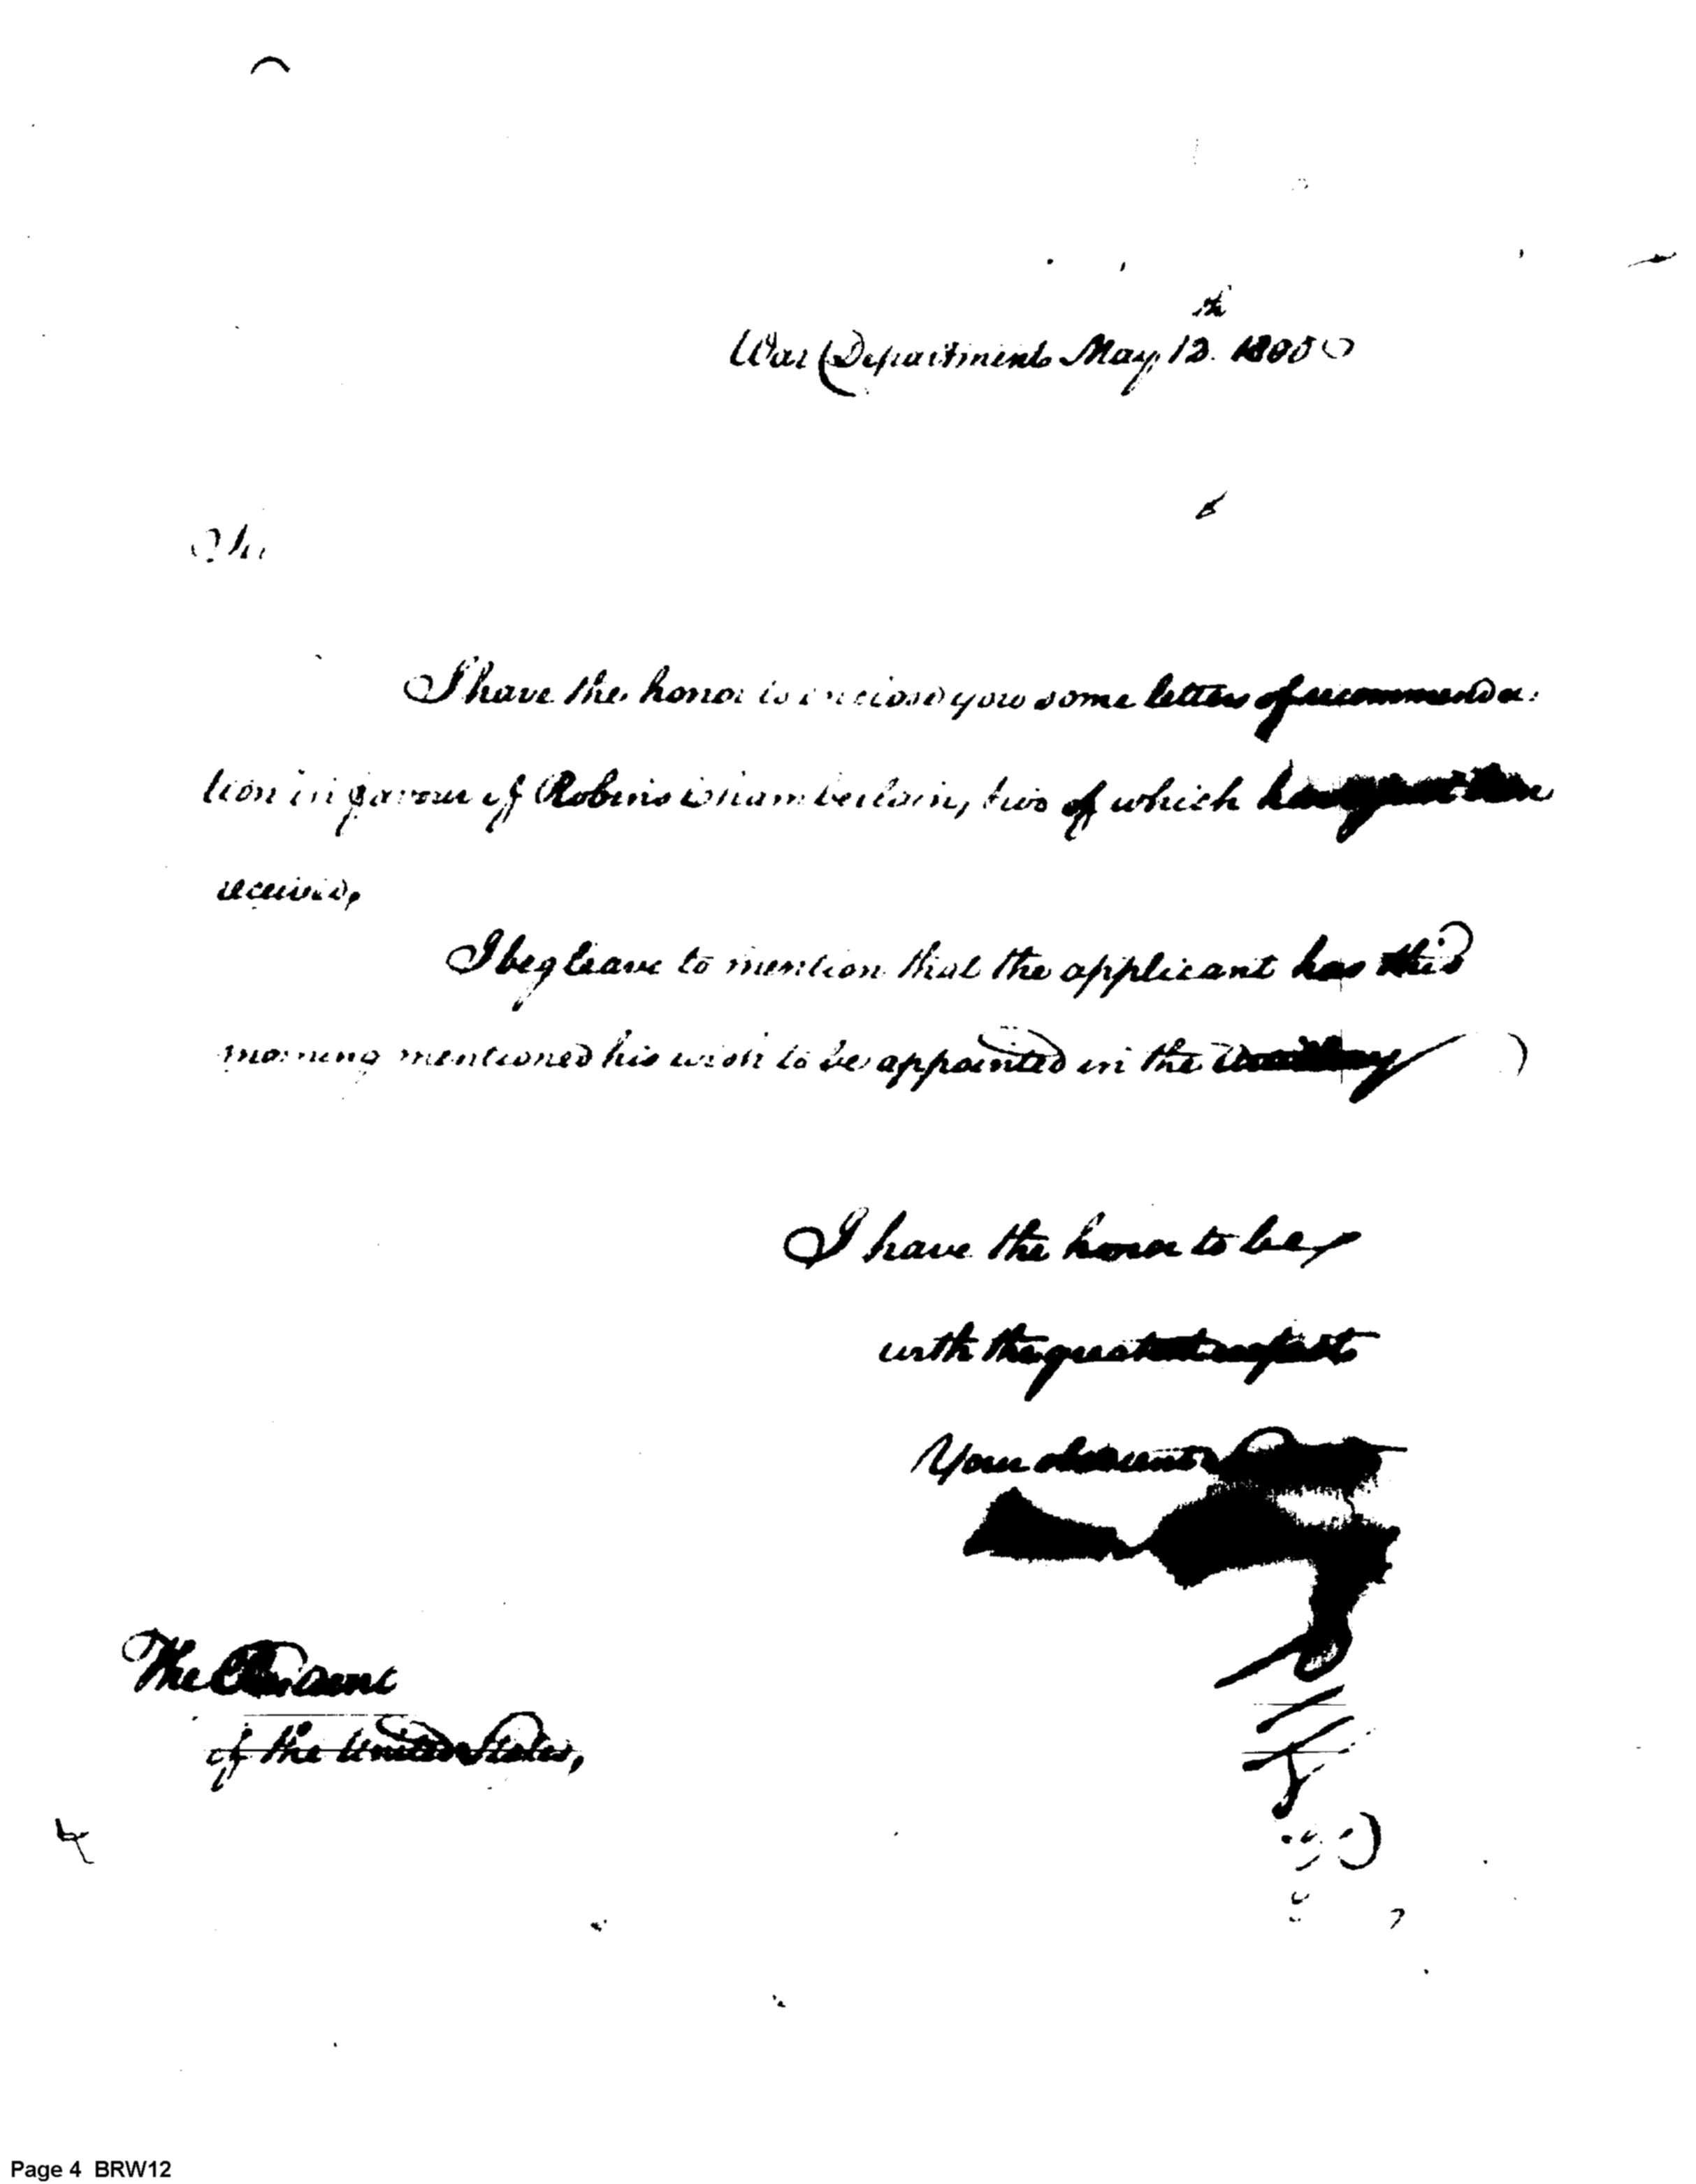 War Department May 12th 1800
Sir
I have the honor to inclose you some letters of recommenda:
tion in favour of Robins Chamberlain, two of which
received,
I beg leave to mention that the applicant has this
morning mentioned his wish to be appointed in the
I have the honor to be,
with the greatest respect
Your
The President
of the United States,
Page 4 BRW12